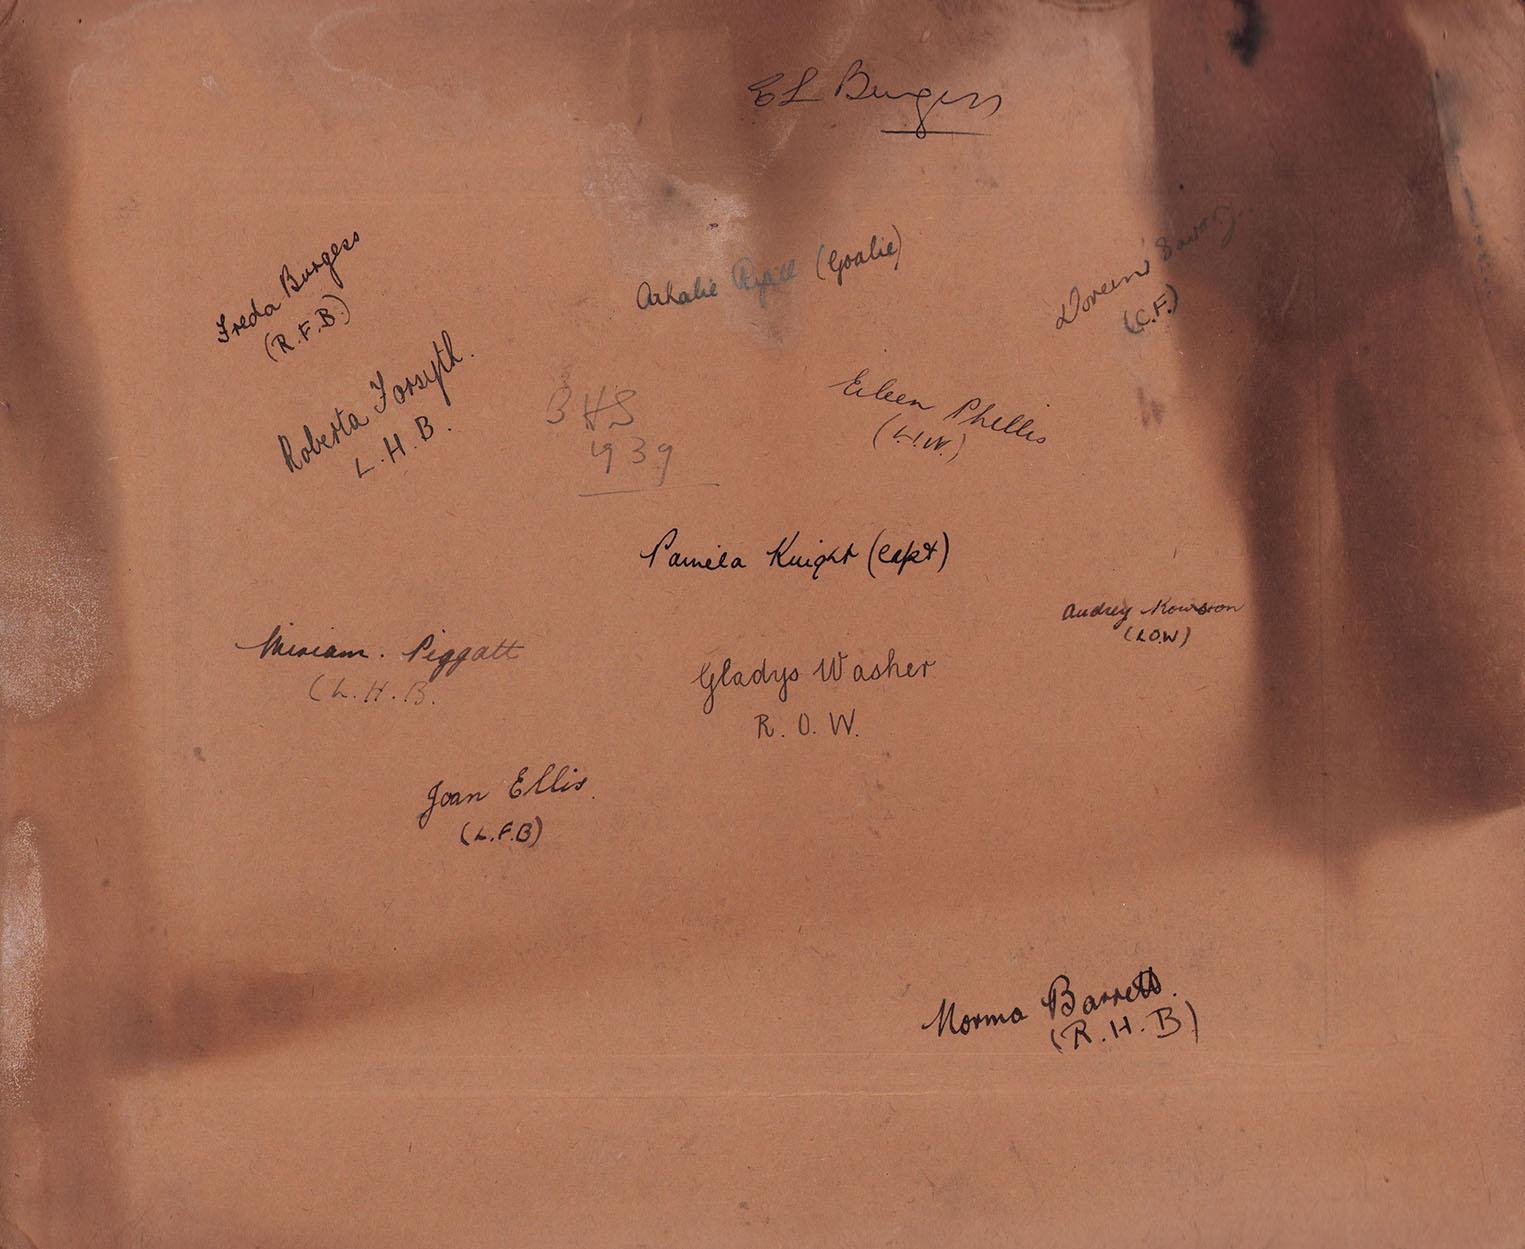 EL Burgess
Freda Burgess
(R.F.B.)
(Goalie)
Doreen
(C.F.)
Roberta Forsyth.
L.H.B.
BHS
1939
Eileen Phellis
(L.I.W.)
Pamela Knight (Capt)
Audrey
(L.O.W)
Miriam. Piggatt
(L.H.B.
Gladys Washer
R.O.W.
Joan Ellis.
(L.F.B)
Norma Barrett.
(R.H.B)